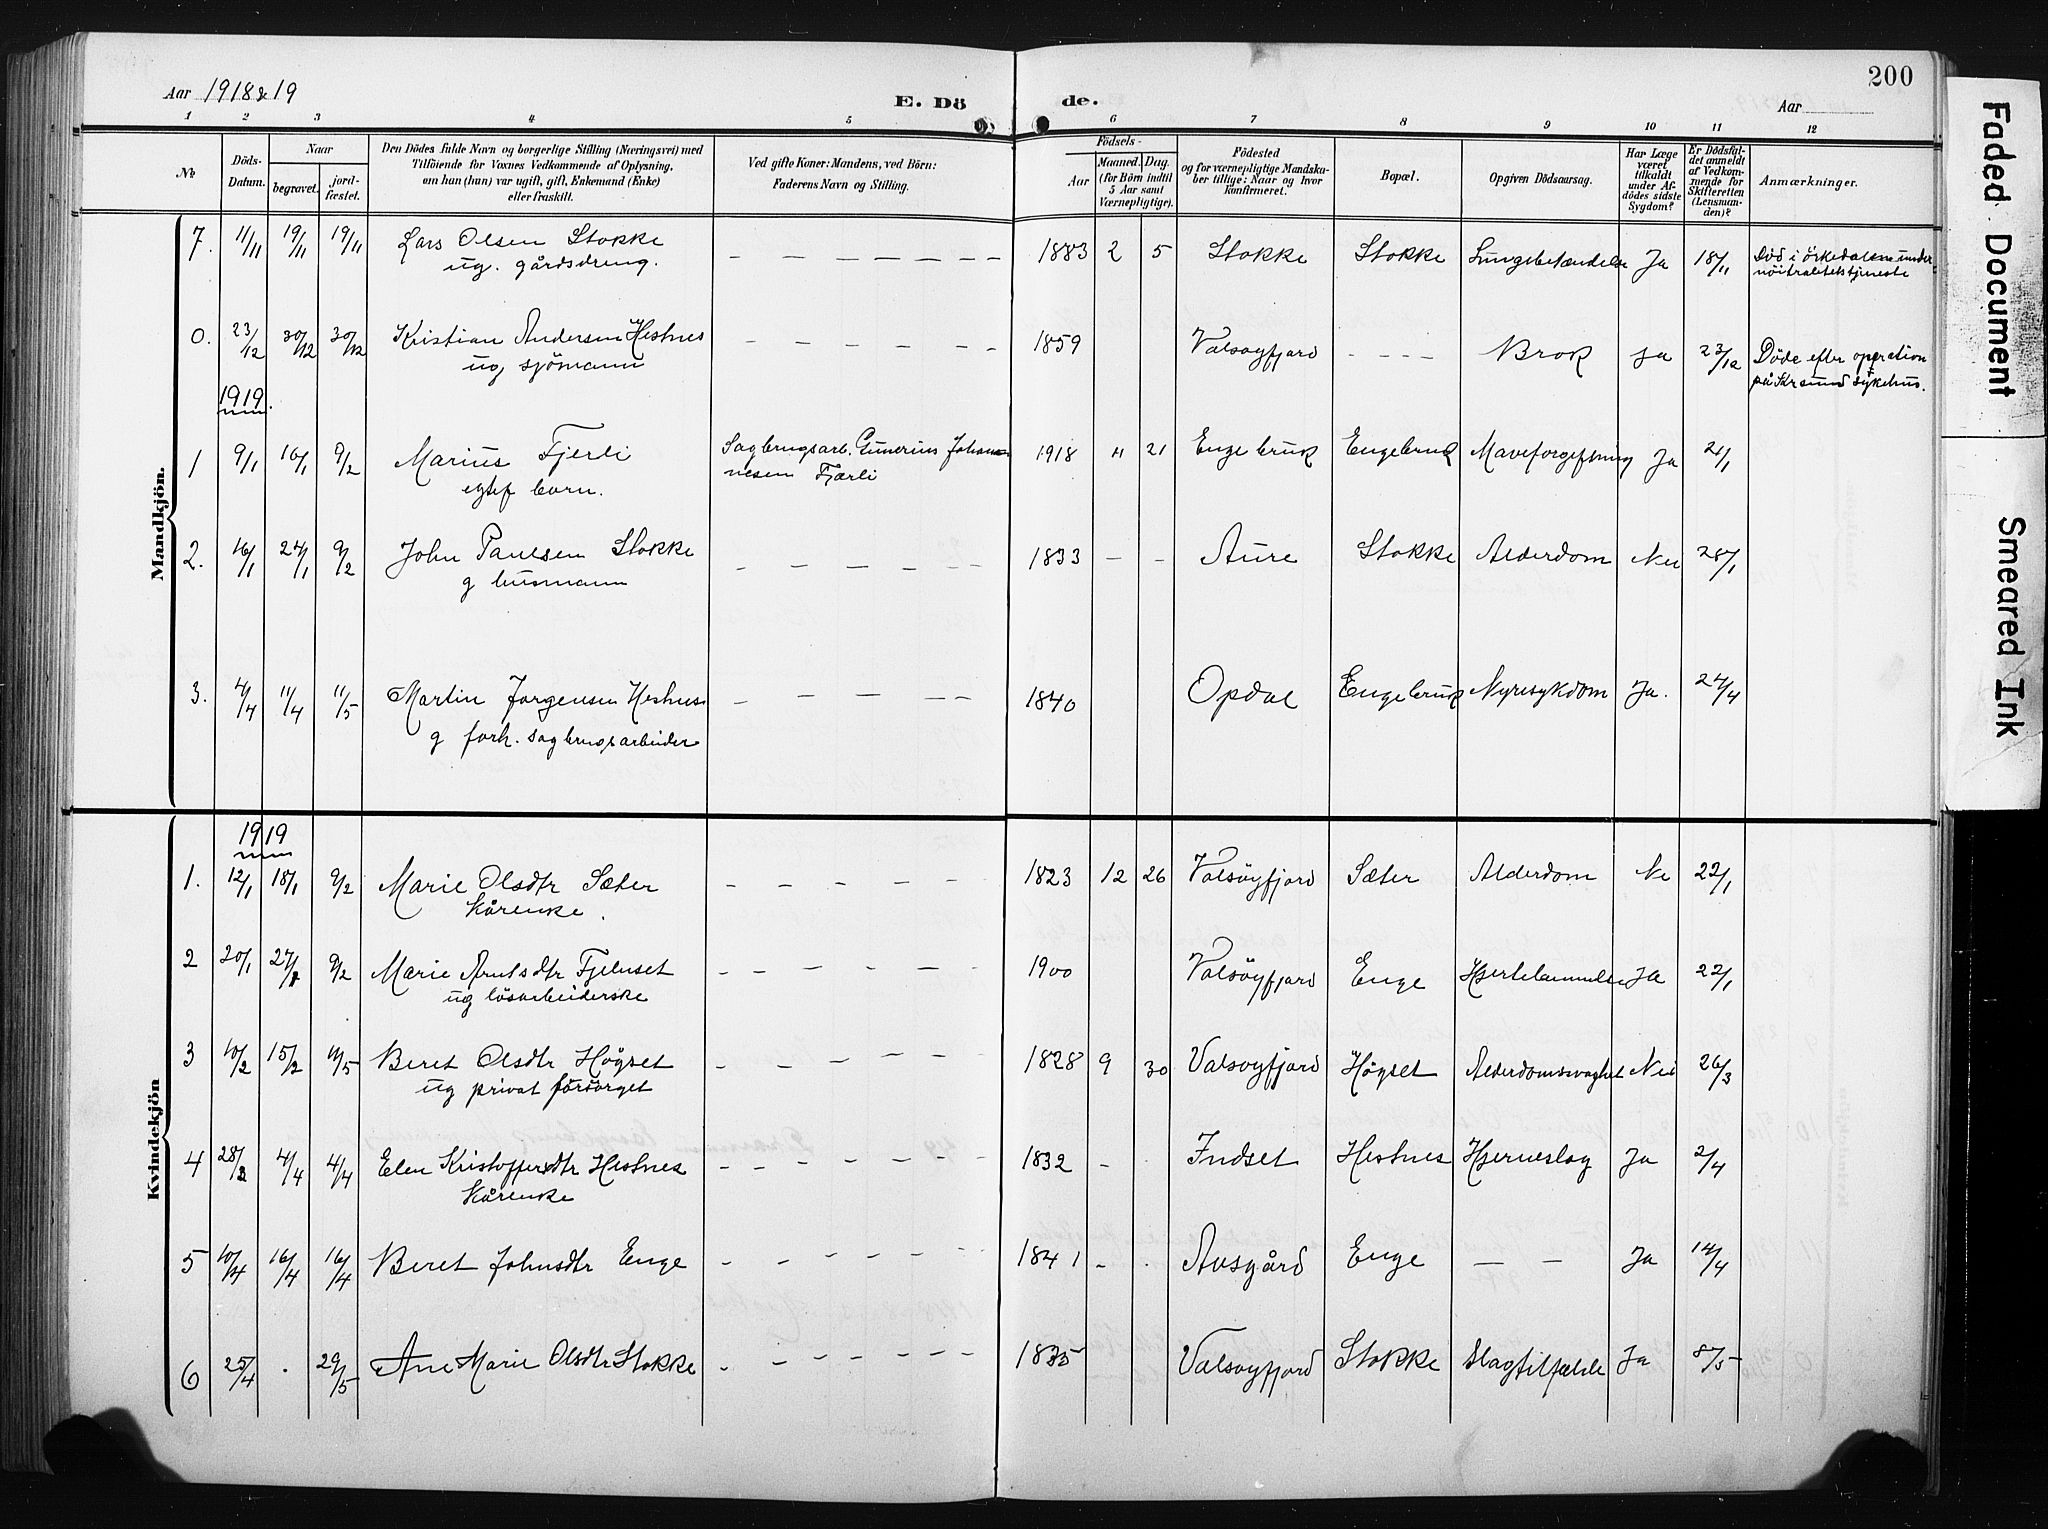 Aar 1918 & 19
E. Dö de.
Aar
200
1 2 3 4 5 6 7 8 9 10 11 12
No
Döds-Datum.
Naar
begravet.
jord-fæstet.
Den Dödes fulde Navn og borgerlige Stilling (Næringsvei) med
Tilföiende for Voxnes Vedkommende af Oplysning,
om han (hun) var ugift, gift, Enkemand (Enke)
eller fraskilt.
Ved gifte Koner: Mandens, ved Börn:
Faderens Navn og Stilling.
Födsels-
Aar
Maaned. Dag.
(for Börn indtil
5 Aar samt
Værnepligtige).
Födested
og for værnepligtige Mandska-
ber tillige: Naar og hvor
Konfirmeret.
Bopæl.
Opgiven Dödsaarsag.
Har Læge
været
tilkaldt
under Af-
dödes sidste
Sygdom?
Er Dödsfal-
det anmeldt
af Vedkom-
mende for
Skifteretten
(Lensman-
den)?
Anmærkninger.
Mandkjön.
7. 11/11 19/11 19/11 Lars Olsen Stokke — — — — — — — 1883 2 5 Stokke Stokke Lungebetændelse Ja 18/11 Död i Örkedalen under
ug. gårdsdreng. nöitralitetstjeneste
0. 23/12 30/12 30/12 Kristian Andersen Hestnes — — — — — — 1859 Valsøyfjord - - - - Brok ja 23/12 Döde efter operation
ug sjömann på Kr.sund sykehus.
1919.
1 9/1 16/1 9/2 Marius Fjerli Sagbrugsarb. Gunerius Johan- 1918 11 21 Engebruk Engebruk Maveforgiftning Ja 21/1
egtef barn. nesen Fjærli
2. 16/1 24/1 9/2 John Paulsen Stokke — — — — — - 1833 — - Aure Stokke Alderdom Nei 28/1
g husmann
3. 4/4 11/4 11/5 Martin Jørgensen Hestnes — — — — 1840 Opdal Engebruk Nyresykdom Ja. 24/4
g forh. sagbrugsarbeider
Kvindekjön
1919
1. 12/1 18/1 9/2 Marie Olsdtr Sæter - - - - - 1823 12 26 Valsöyfjord Sæter Alderdom Ne 22/1
Kårenke.
2 20/1 27/1 9/2 Marie Arntsdtr Fjelnset - - - - - - 1900 Valsöyfjord Enge Hjertelammelse Ja 22/1
ug lösarbeiderske
3 10/2 15/2 11/5 Beret Olsdtr Högset - - - - - - 1828 9 30 Valsøyfjord Högset Alderdomsvaghet Nei 26/3
ug privat forsörget
4 28/3 4/4 4/4 Elen Kristoffersdtr Hestnes 1832 - Indset Hestnes Hjerneslag Ja 2/4
Kårenke
5 10/4 16/4 16/4 Beret Johnsdtr Enge - - - - - - - 1841 - . Avsgård Enge — — Ja 14/4
6 25/4 . 29/5 Ane Marie Olsdtr Stokke - - - - - - - 1835 Valsøyfjord Stokke Slagtilfælde Ja 8/5
Faded Document
Smeared Ink